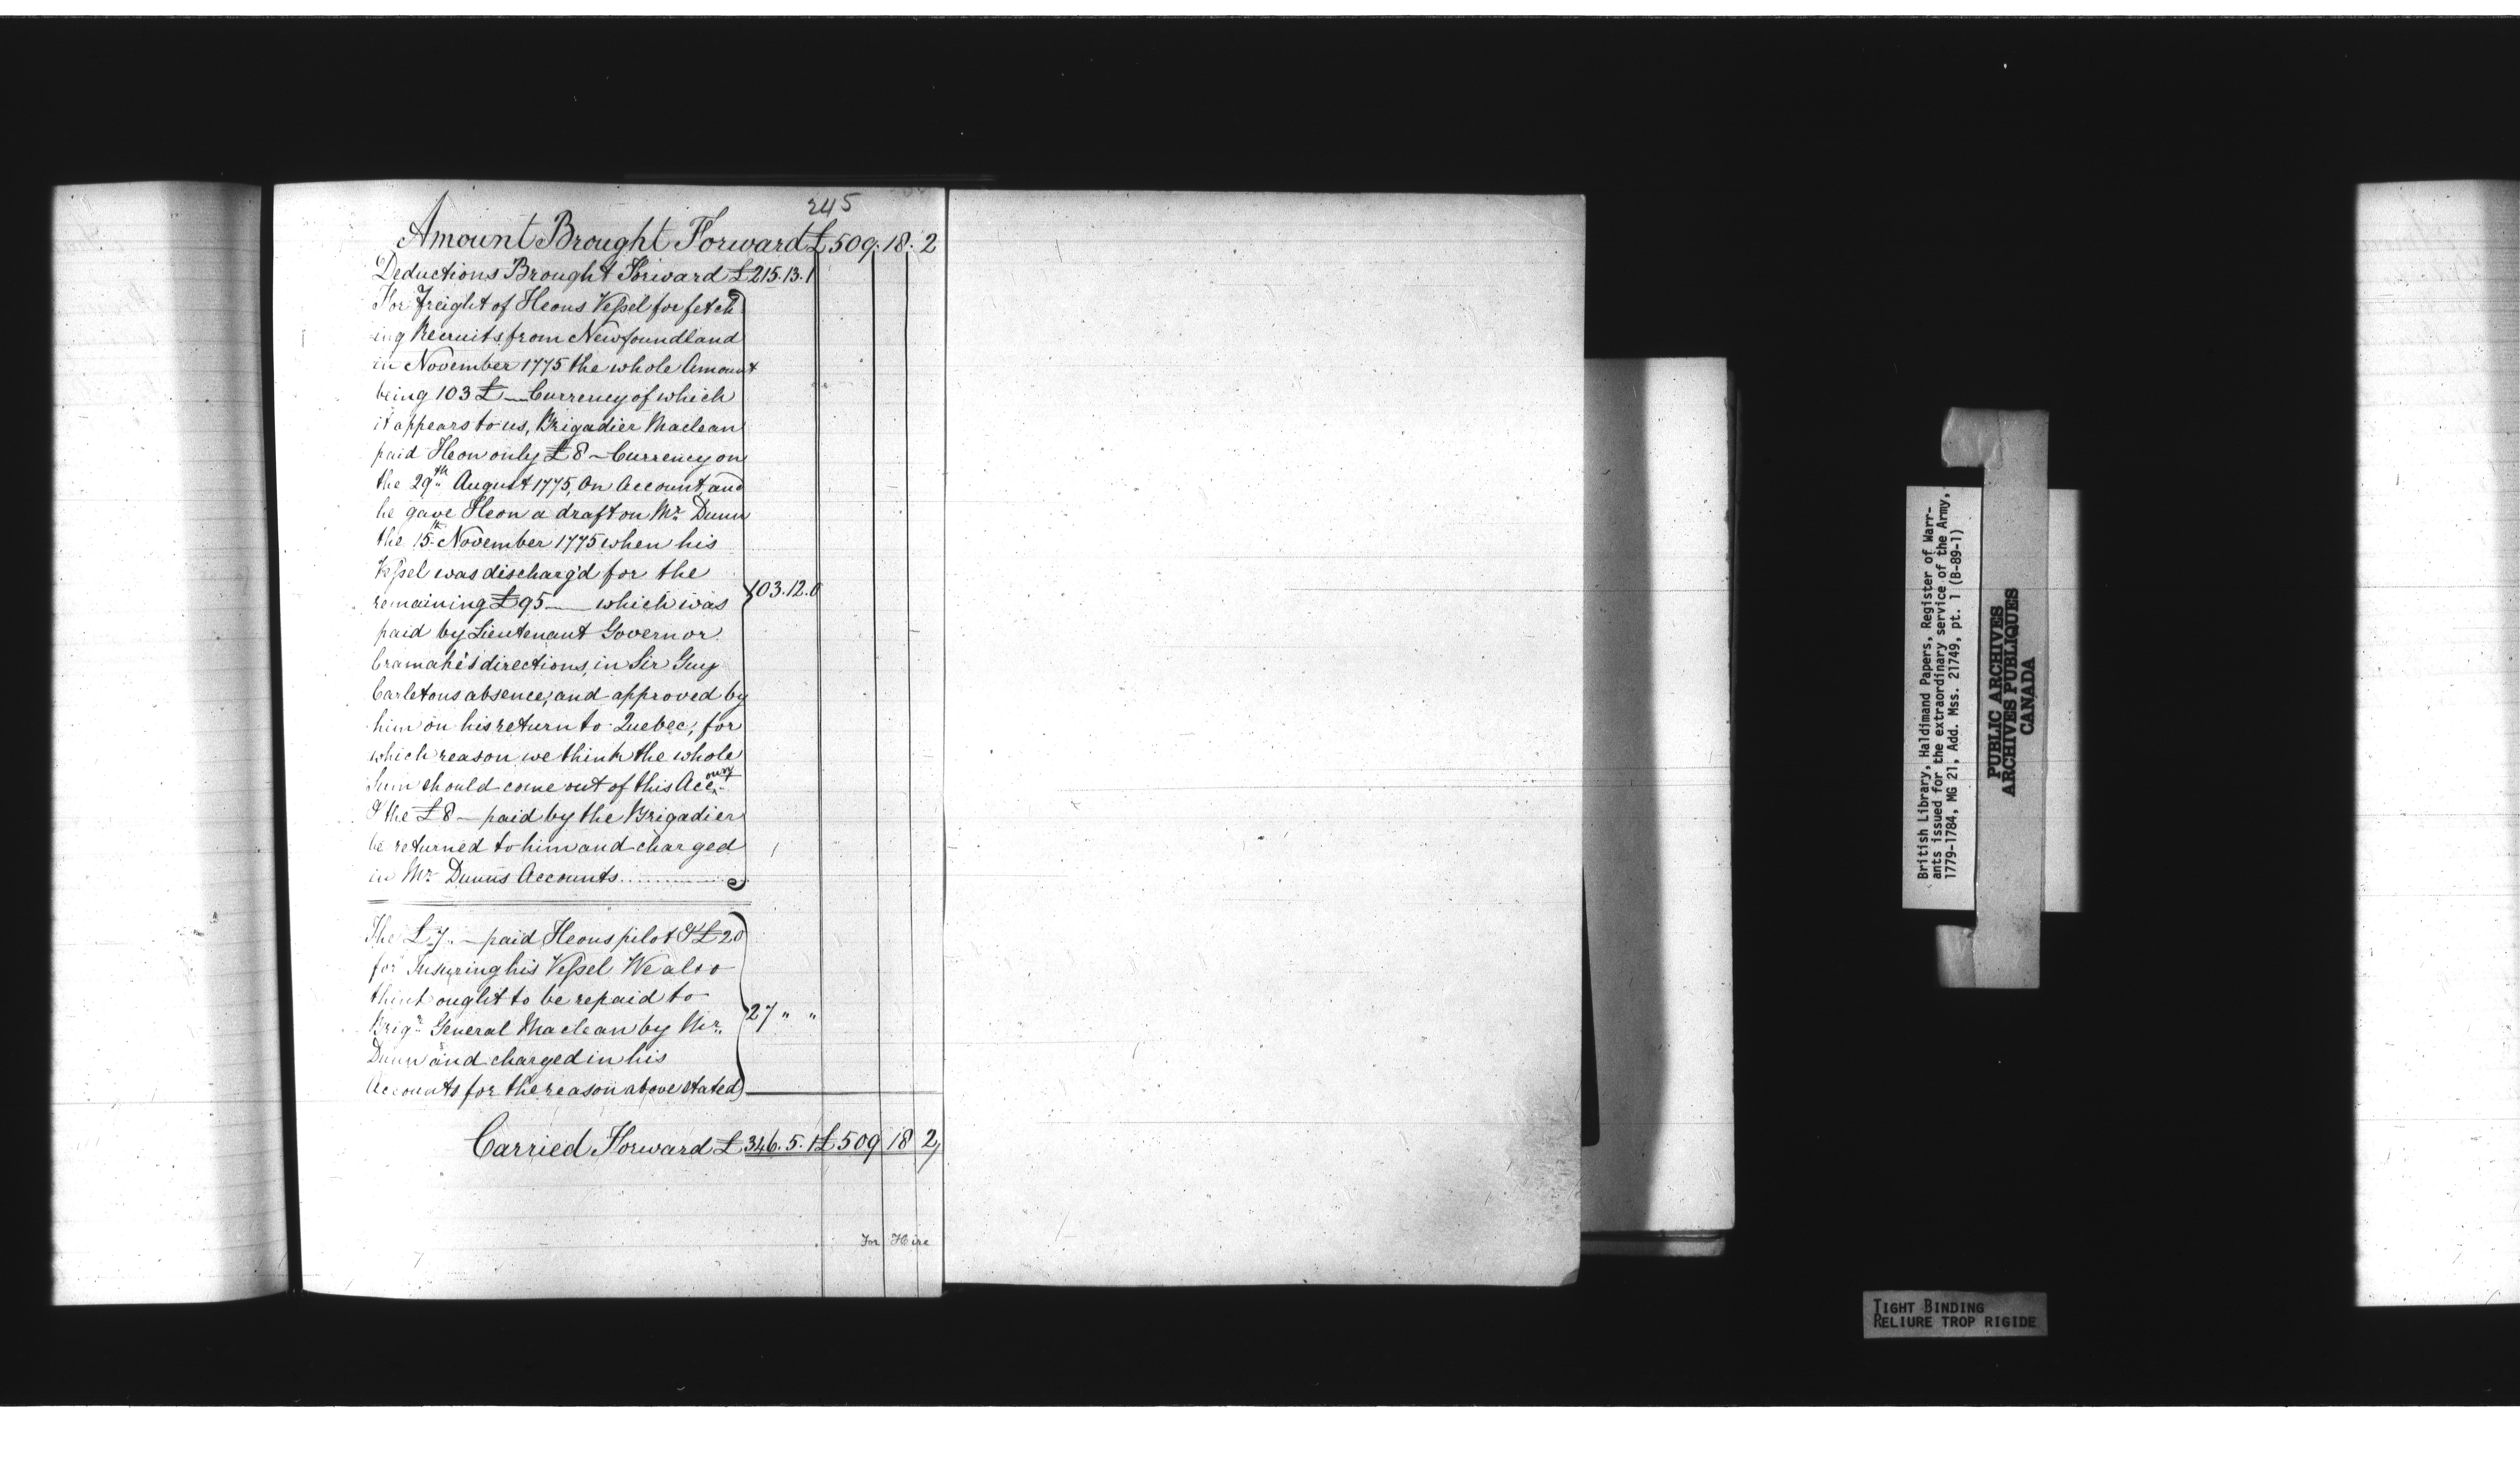 245
Amount Brought Forward £509.18.2
Deductions Brought Forward £215.13.1
For Freight of Heons Vessel for fetch
ing Recruits from Newfoundland
in November 1775 the whole Amount
being 103 £ — Currency of which
it appears to us, Brigadier Maclean
paid Heon only £8 — Currency on
the 29th August 1775, On Account, and
he gave Heon a draft on Mr. Dunn
the 15th November 1775 when his
Vessel was discharg'd for the
remaining £95 — which was
103.12.0
paid by Lieutenant Governor
Cramahé's directions, in Sir Guy
Carletons absence, and approved by
him on his return to Quebec, for
which reason we think the whole
Sum should come out of this Account
& the £8 — paid by the Brigadier
be returned to him and charged
in Mr. Dunns Accounts
The £7 .. — paid Heons pilot & £20
for Insuring his Vessel We also
think ought to be repaid to
Brigr. General Maclean by Mr.
27 " "
Dunn and charged in his
Accounts for the reason above stated
Carried Forward £346.5.1 £509 18 2
For Hire
British Library, Haldimand Papers, Register of Warr-
ants issued for the extraordinary service of the Army,
1779-1784, MG 21, Add. Mss. 21749, pt. 1 (B-89-1)
PUBLIC ARCHIVES
ARCHIVES PUBLIQUES
CANADA
TIGHT BINDING
RELIURE TROP RIGIDE